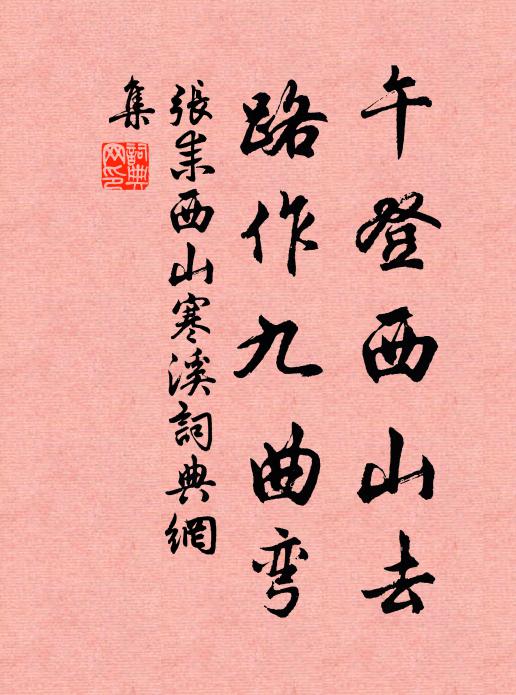 午登西山去
路作九曲弯
張耒西山寒溪詞典網
集
詞典網印